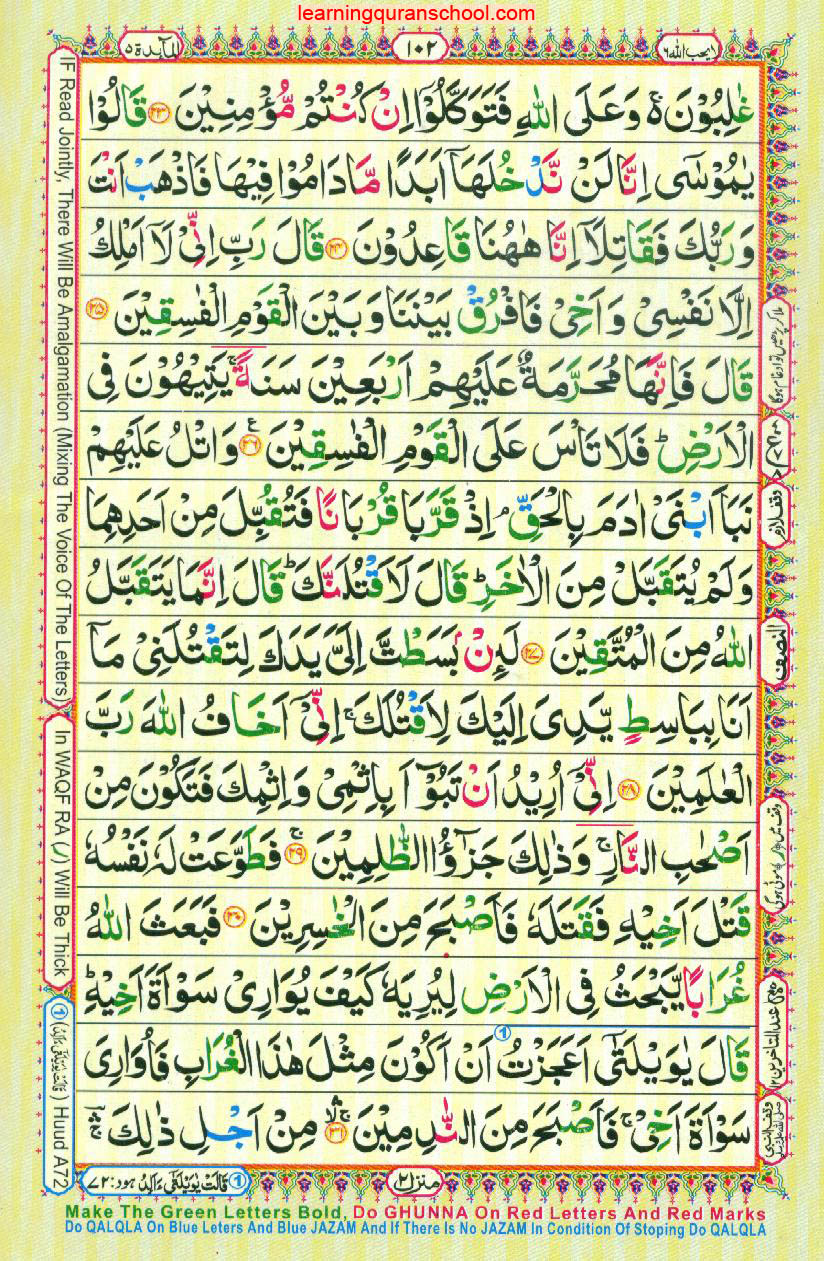 learningquranschool.com
لا یحب اللہ ٦
١٠٢
المآئدة ٥
غٰلِبُوْنَ ۚ۬ وَعَلَى اللّٰهِ فَتَوَكَّلُوْۤا اِنْ كُنْتُمْ مُّؤْمِنِيْنَ ﴿۲۳﴾ قَالُوْا
يٰمُوْسٰۤى اِنَّا لَنْ نَّدْخُلَهَاۤ اَبَدًا مَّا دَامُوْا فِيْهَا فَاذْهَبْ اَنْتَ
وَرَبُّكَ فَقَاتِلَاۤ اِنَّا هٰهُنَا قَاعِدُوْنَ ﴿۲۴﴾ قَالَ رَبِّ اِنِّيْ لَاۤ اَمْلِكُ
اِلَّا نَفْسِيْ وَاَخِيْ فَافْرُقْ بَيْنَنَا وَبَيْنَ الْقَوْمِ الْفٰسِقِيْنَ ﴿۲۵﴾
قَالَ فَاِنَّهَا مُحَرَّمَةٌ عَلَيْهِمْ اَرْبَعِيْنَ سَنَةً ۚ يَتِيْهُوْنَ فِي
الْاَرْضِ ؕ فَلَا تَاْسَ عَلَى الْقَوْمِ الْفٰسِقِيْنَ ﴿۲۶﴾ وَاتْلُ عَلَيْهِمْ
نَبَاَ ابْنَيْ اٰدَمَ بِالْحَقِّ ۘ اِذْ قَرَّبَا قُرْبَانًا فَتُقُبِّلَ مِنْ اَحَدِهِمَا
وَلَمْ يُتَقَبَّلْ مِنَ الْاٰخَرِ ؕ قَالَ لَاَقْتُلَنَّكَ ؕ قَالَ اِنَّمَا يَتَقَبَّلُ
اللّٰهُ مِنَ الْمُتَّقِيْنَ ﴿۲۷﴾ لَئِنْۢ بَسَطْتَّ اِلَيَّ يَدَكَ لِتَقْتُلَنِيْ مَاۤ
اَنَا بِبَاسِطٍ يَّدِيَ اِلَيْكَ لِاَقْتُلَكَ ۚ اِنِّيْۤ اَخَافُ اللّٰهَ رَبَّ
الْعٰلَمِيْنَ ﴿۲۸﴾ اِنِّيْۤ اُرِيْدُ اَنْ تَبُوْٓاَ بِاِثْمِيْ وَاِثْمِكَ فَتَكُوْنَ مِنْ
اَصْحٰبِ النَّارِ ۚ وَذٰلِكَ جَزٰٓؤُا الظّٰلِمِيْنَ ﴿۲۹﴾ۚ فَطَوَّعَتْ لَهٗ نَفْسُهٗ
قَتْلَ اَخِيْهِ فَقَتَلَهٗ فَاَصْبَحَ مِنَ الْخٰسِرِيْنَ ﴿۳۰﴾ فَبَعَثَ اللّٰهُ
غُرَابًا يَّبْحَثُ فِي الْاَرْضِ لِيُرِيَهٗ كَيْفَ يُوَارِيْ سَوْاَةَ اَخِيْهِ ؕ
قَالَ يٰوَيْلَتٰۤى اَعَجَزْتُ اَنْ اَكُوْنَ مِثْلَ هٰذَا الْغُرَابِ فَاُوَارِيَ
سَوْاَةَ اَخِيْ ۚ فَاَصْبَحَ مِنَ النّٰدِمِيْنَ ﴿۳۱﴾ مِنْ اَجْلِ ذٰلِكَ
IF Read Jointly, There Will Be Amalgamation (Mixing The Voice Of The Letters)
In WAQF RA (ر) Will Be Thick
① (قَالَتْ يٰوَيْلَتٰٓى ءَاَلِدُ) Huud A72
وقف لازم
النصف
منزل ٢
① قَالَتْ يٰوَيْلَتٰٓى ءَاَلِدُ هود: ٧٢
Make The Green Letters Bold, Do GHUNNA On Red Letters And Red Marks
Do QALQLA On Blue Leters And Blue JAZAM And If There Is No JAZAM In Condition Of Stoping Do QALQLA